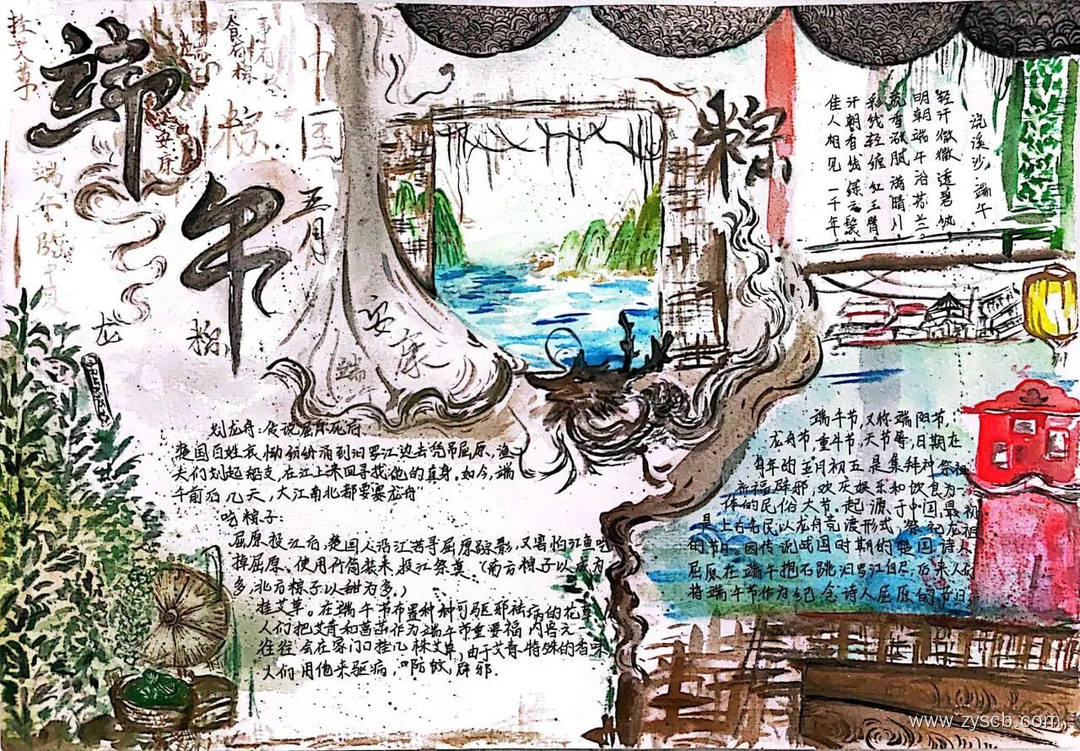 端午
安康
挂艾草
粽
中国
五月
粽
龙
安康
端
粽
浣溪沙 端午
轻汗微微透碧纨
明朝端午浴芳兰
流香涨腻满晴川
彩线轻缠红玉臂
佳人相见一千年
划龙舟:传说屈原死后,
楚国百姓哀恸纷纷涌到汨罗江边去凭吊屈原,渔
夫们划起船支,在江上来回寻找他的真身,如今,端
午前后几天,大江南北都要赛龙舟
吃粽子:
屈原投江后,楚国人沿江苦寻屈原踪影,又害怕江鱼吃
掉屈原,使用竹筒装米,投江祭奠。(南方粽子以咸为
多,北方粽子以甜为多。)
挂艾草。在端午节布置种种可驱邪祛病的花草
人们把艾青和菖蒲作为端午节重要
往往会在家门口挂几株艾草,由于艾青特殊的香味
人们用他来驱病,防蚊,辟邪.
端午节,又称端阳节,
龙舟节,重午节,天节等,日期在
每年的五月初五,是集拜神祭祖
祈福辟邪,欢庆娱乐和饮食为一
体的民俗大节.起源于中国,最初
是上古先民以龙舟竞渡形式祭祀龙祖
的节日。因传说战国时期的楚国诗人
屈原在端午抱石跳汨罗江自尽,后来人们
将端午节作为纪念诗人屈原的节日
www.zyscb.com